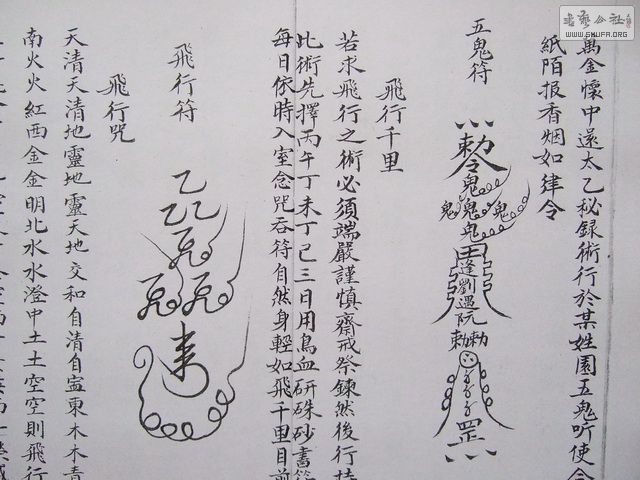 萬金懷中還太乙秘録術行於某姓園五鬼听使令
紙陌报香烟如律令
五鬼符
勅令
鬼
鬼鬼鬼
鬼
田
逢劉遇阮
勅勅
罡
飛行千里
若求飛行之術必須端嚴謹慎齋戒祭鍊然後行持
此術先擇丙午丁未丁巳三日用鳥血研硃砂書符
每日依時入室念咒吞符自然身輕如飛千里目前
飛行符
乙
乙乙
飛行咒
天清天清地靈地靈天地交和自清自寍東木木青
南火火紅西金金明北水水澄中土土空空則飛行
書藝公社
WWW.SHUFA.ORG